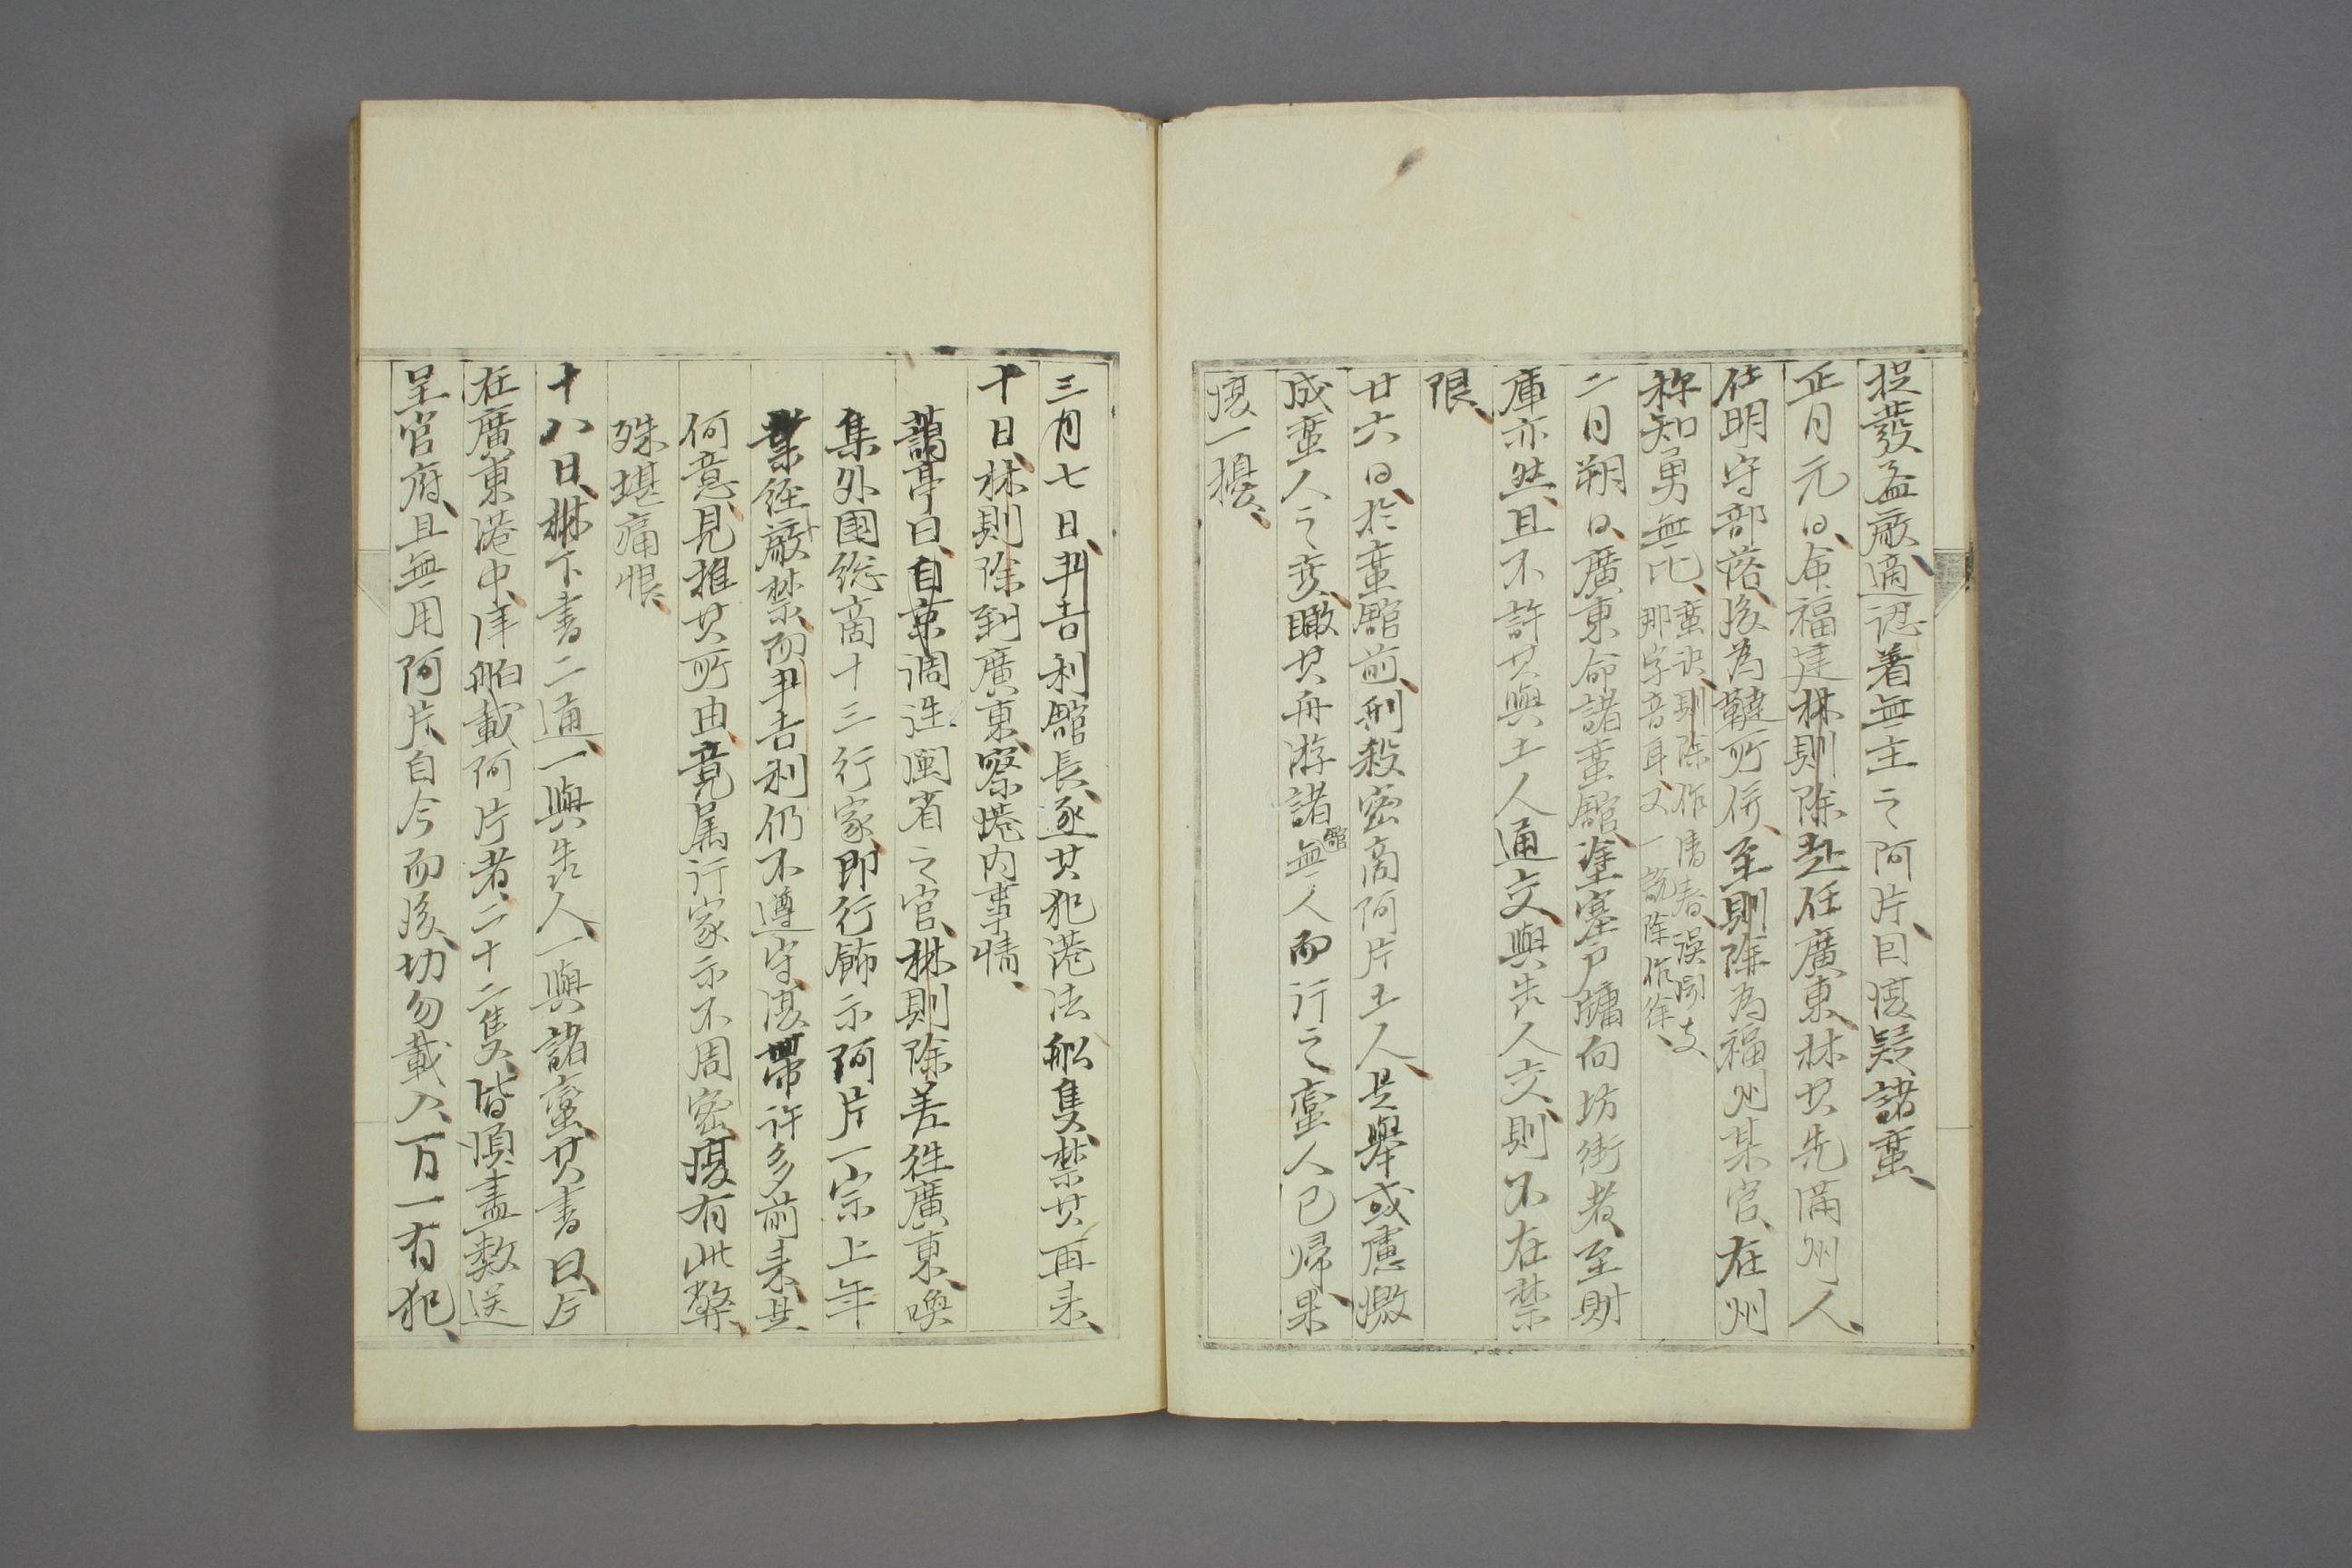 捉發益厳、適認着無主之阿片、因復疑諸蛮、
正月元日、命福建林則除赴任廣東、林其先滿州人、
仕明守部落、後為韃所併、至則除為福州某官、在州
称知勇無比、
蛮史、則除作清春、误聞支
那字音耳、又一説除作徐、
二月朔日、廣東命諸蛮館、塗塞戸牖向坊街者、至財
庫亦然、且不許其與土人通交、與英人交、則不在禁
限、
廿六日、於蛮館前、刑殺密商阿片土人、是舉或慮激
成蛮人之变、瞰其舟游諸館無人而行之、蛮人已帰、果
復一擾、
三月七日、英吉利館長、逐其犯港法船隻、禁其再来、
十日、林則除到廣東、察港内事情、
藹亭曰、自京调送闽省之官、林則除差徃廣東、唤
集外国総商十三行家、即行飾示阿片一宗、上年
業徑厳禁、而英吉利仍不遵守、復帯許多前来、其
何意見、推其所由、竟属行家示不周密、復有此弊、
殊堪痛恨、
十八日、林下書二通、一與英人、一與諸蛮、其書曰、今
在廣東港中、洋舶載阿片者、二十二隻、皆須盡数送
呈官府、且無用阿片、自今而後、切勿載入、万一有犯、